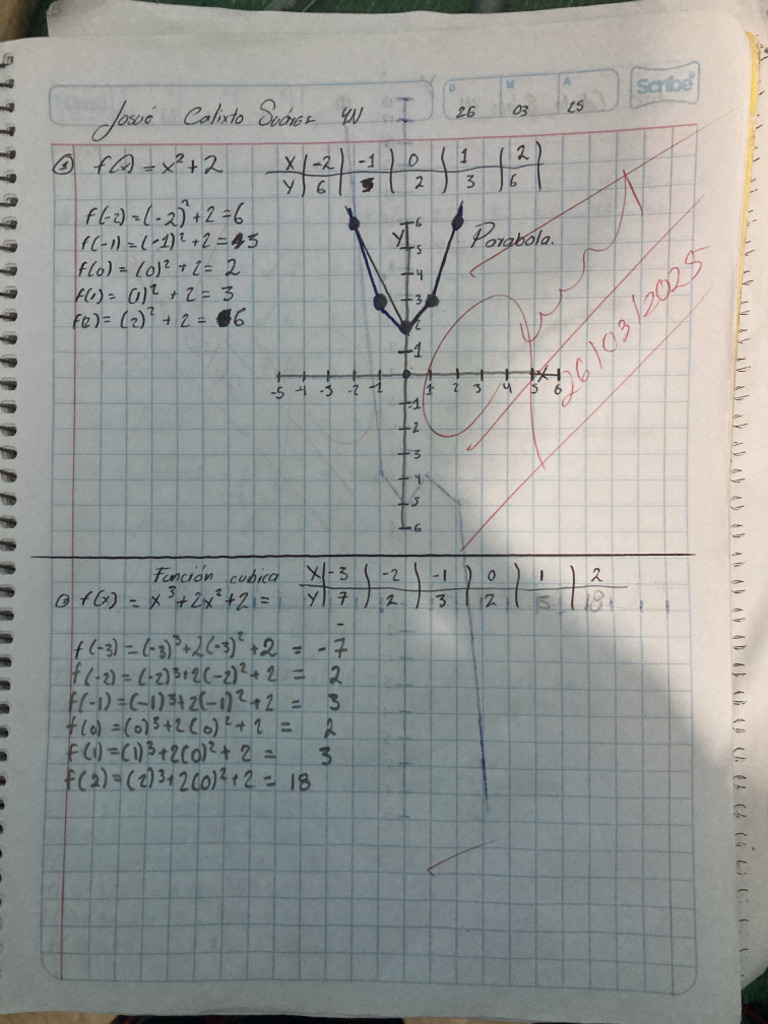 D M A
Scribe
Josué Calixto Suárez 4N 26 03 25
f(x) = x² + 2
X -2 -1 0 1 2
Y 6 2 3 6
f(-2) = (-2)² + 2 = 6
f(-1) = (-1)² + 2 =
f(0) = (0)² + 2 = 2
f(1) = (1)² + 2 = 3
f(2) = (2)² + 2 = 6
Y Parabola.
6
5
4
3
2
1
-5 -4 -3 -2 -1 1 2 3 4 5 X 6
-1
2
3
4
5
6
26/03/2025
Función cubica
X -3 -2 -1 0 1 2
f(x) = x³ + 2x² + 2 =
Y 7 2 3 2 5 18
-
f(-3) = (-3)³ + 2(-3)² + 2 = -7
f(-2) = (-2)³ + 2(-2)² + 2 = 2
f(-1) = (-1)³ + 2(-1)² + 2 = 3
f(0) = (0)³ + 2(0)² + 2 = 2
f(1) = (1)³ + 2(0)² + 2 = 3
f(2) = (2)³ + 2(0)² + 2 = 18